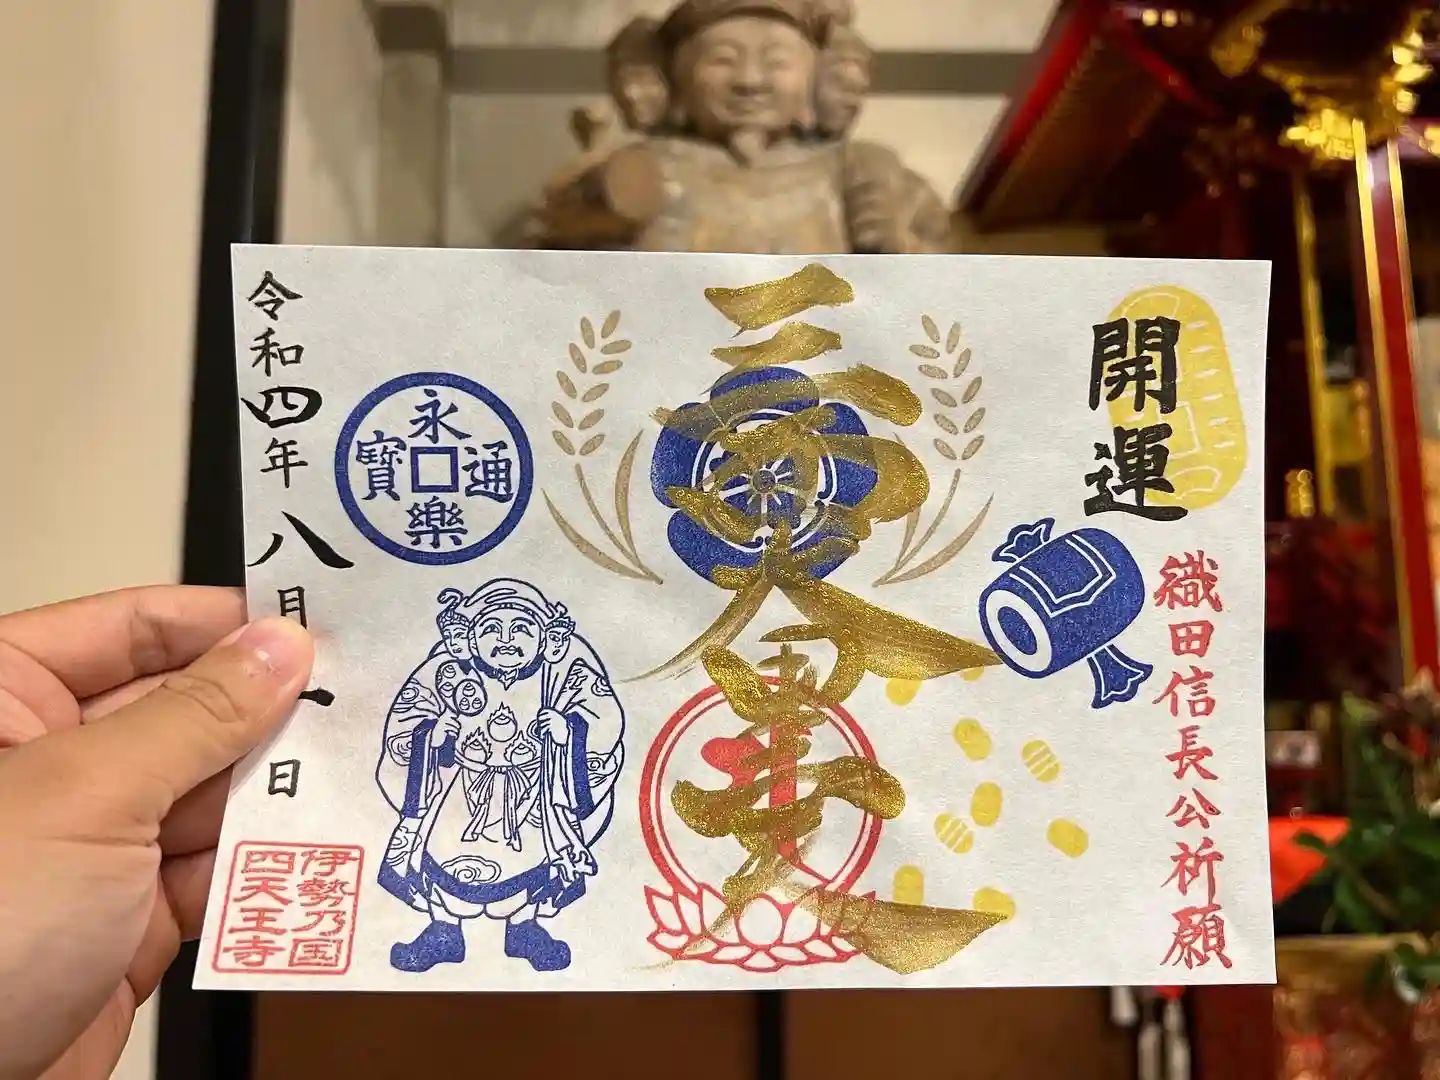 開運
織田信長公祈願
三面大黒天
永樂通寶
令和四年八月一日
伊勢乃国
四天王寺